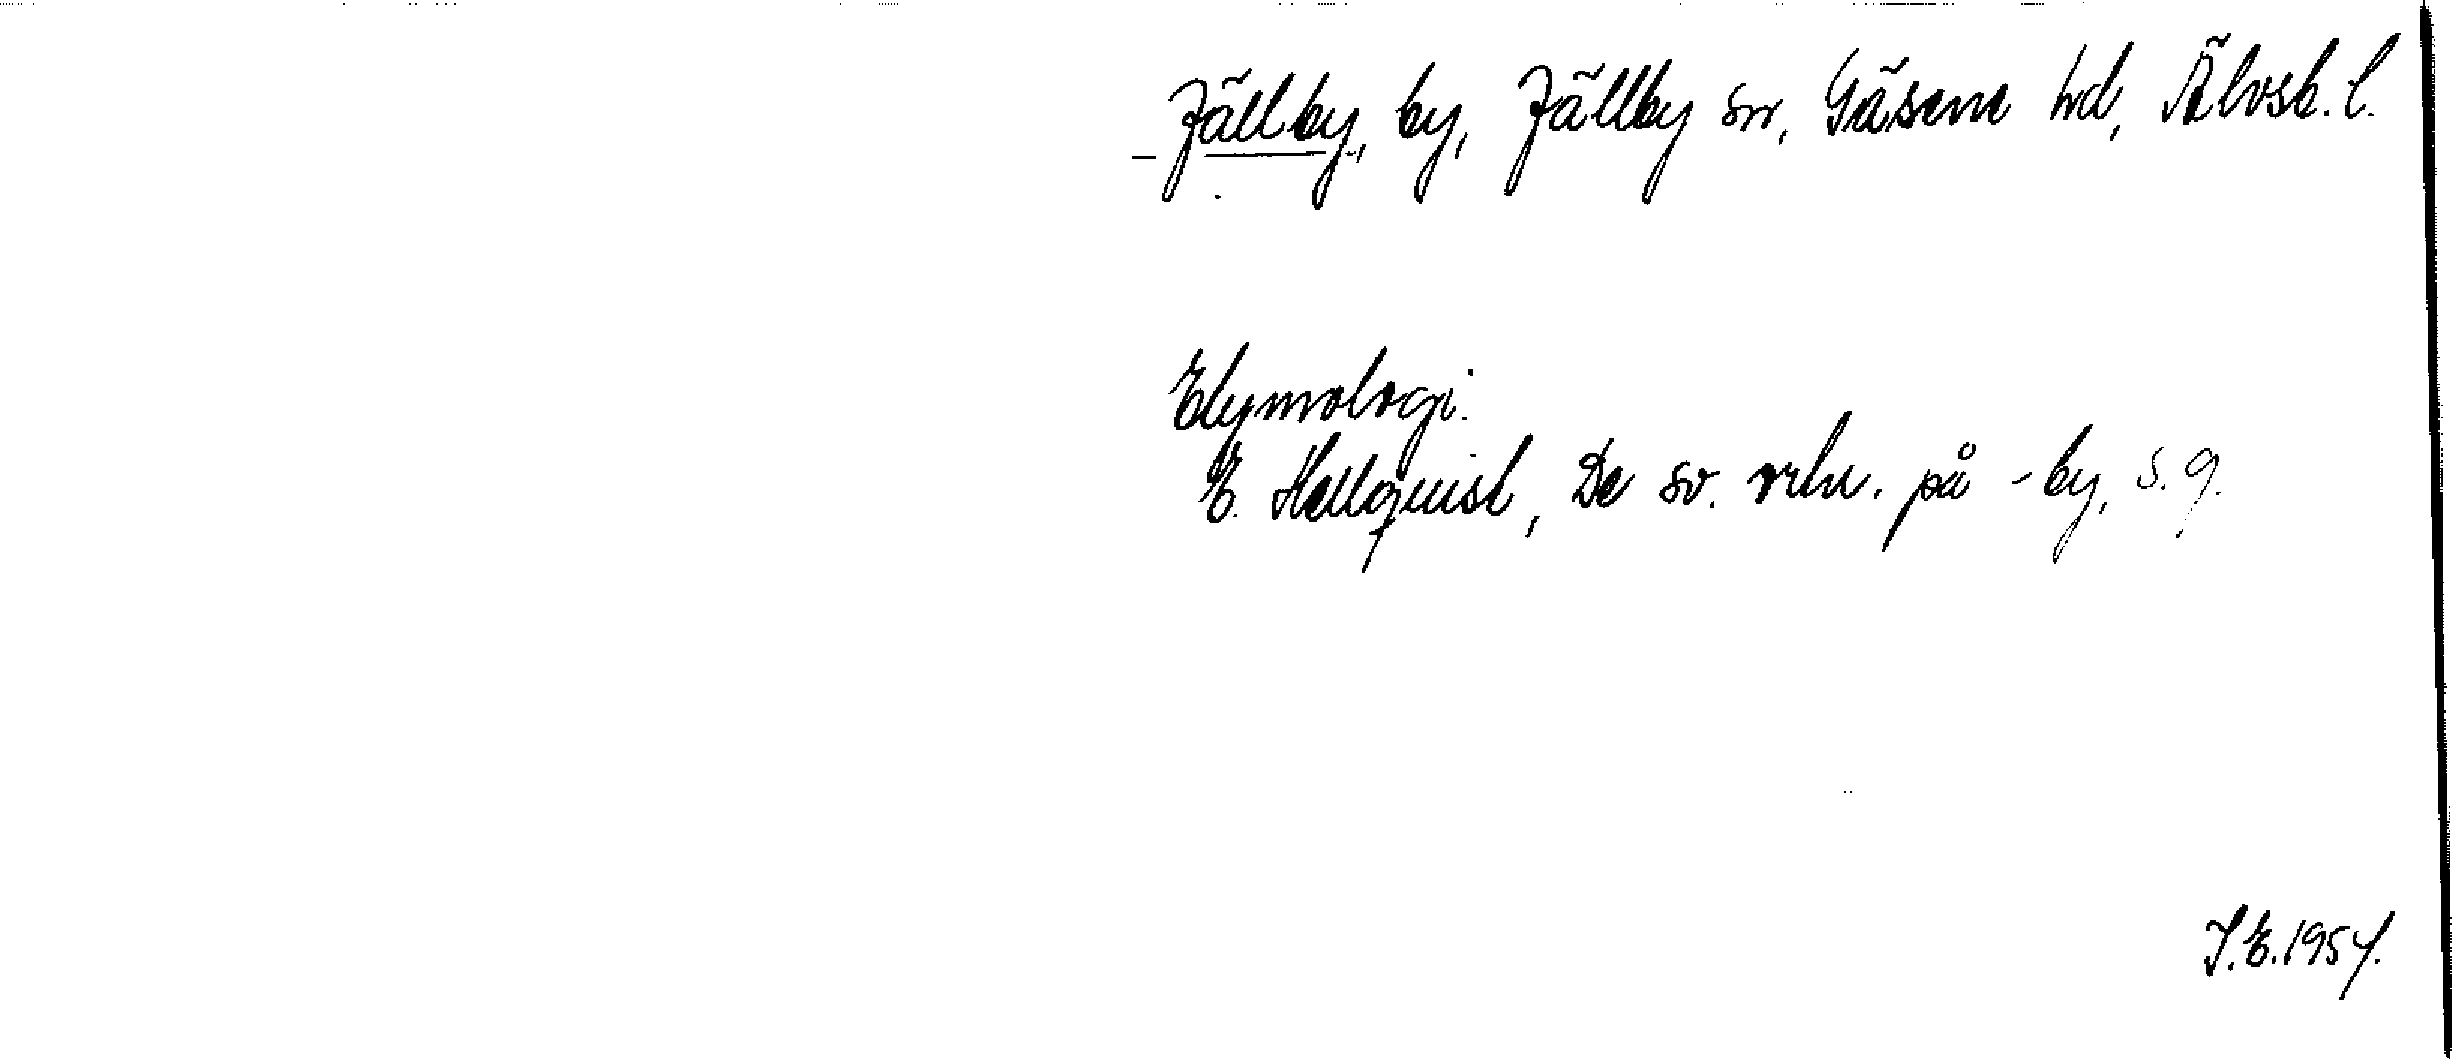 Jällby, by, Jällby sn, Gäsene hd, Älvsb. l.
Etymologi.
E. Hellquist, De sv. ortn. på -by, s. 9.
J. E. 1954.